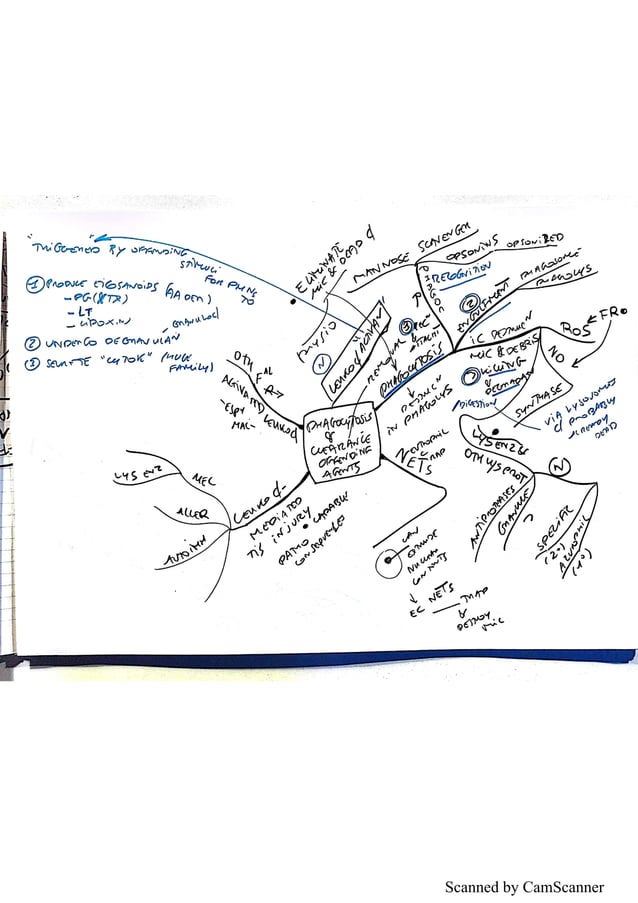 TRIGGERED BY OFFENDING
STIMULI
FOR
TO
① PRODUCE EICOSANOIDS
- PG (& TX)
- LT
- LIPOXIN
② UNDERGO DEGRANULAN
③ SECRETE "CYTOK" (HUGE
FAMILY)
ELIMINATE
MIC & DEAD
PHYSIO
N
LEUKO ACTIVAN
MANNOSE
SCAVENGER
OPSONINS OPSONIZED
RECOGNITION
②
ENGULFMENT
PHAGOSOME
PHAGOLYS
①
REC
ATTACHT
REMOVAL
PHAGOCYTOSIS
IN PHAGOLYS
IC
MIC & DEBRIS
③ KILLING
&
DEGRADAN
DIGESTION
ROS
FR
NO
SYNTHASE
VIA LYSOSOMES
PROBABLY
ALREADY
DEAD
LYS ENZ &
OTH LYS PROT
ANTIPROTEASES
N
SPECIFIC
(2°)
AZUROPHIL
(1°)
PHAGOCYTOSIS
&
CLEARANCE
OFFENDING
AGENTS
OTH
ACTIVATED LEUKO
- ESPY
MAC -
LEUKO -
MEDIATED
TIS INJURY
PATHO
CAPABLE
CONSEQUENCES
MEC
LYS ENZ
ALLER
AUTOIMM
NEUTROPHIL
EC
TRAP
NETS
CAN
EXTRUDE
NUCLEAR
CONTENTS
↓
EC NETS
TRAP
&
DESTROY
MIC
Scanned by CamScanner